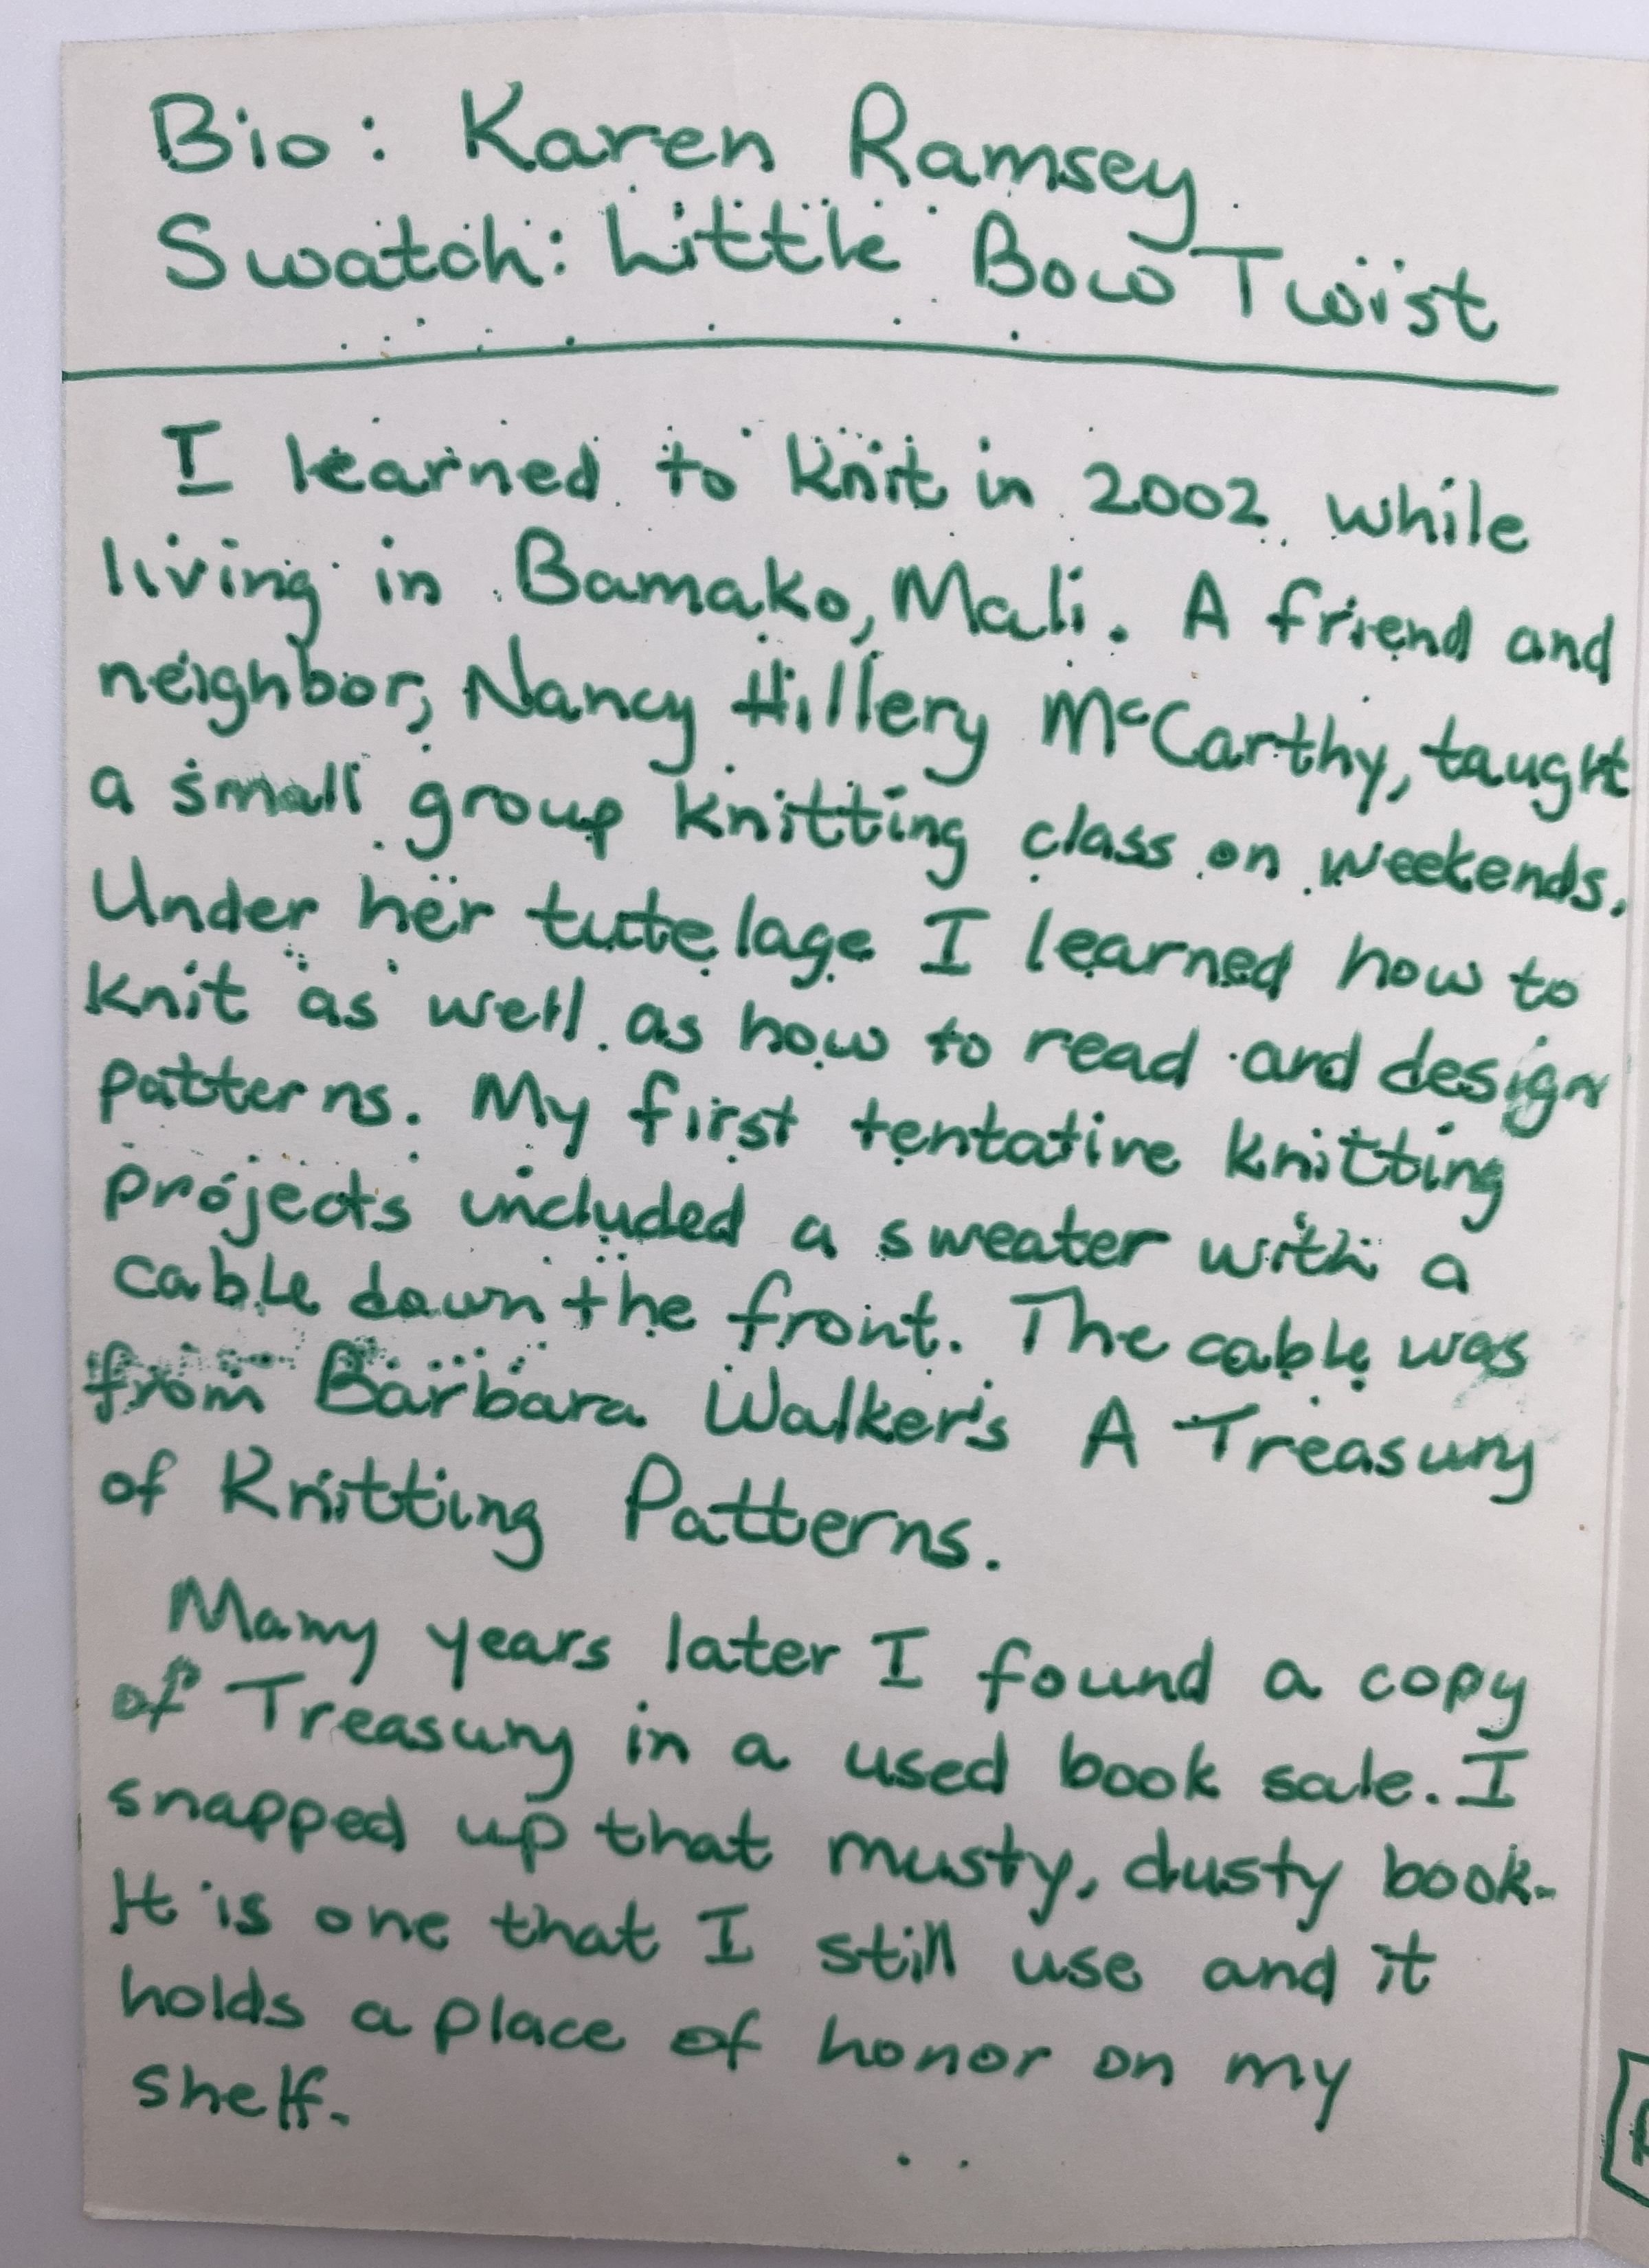 Bio: Karen Ramsey
Swatch: Little Bow Twist
I learned to knit in 2002 while
living in Bamako, Mali. A friend and
neighbor, Nancy Hillery McCarthy, taught
a small group knitting class on weekends.
Under her tutelage I learned how to
knit as well as how to read and design
patterns. My first tentative knitting
projects included a sweater with a
cable down the front. The cable was
from Barbara Walker's A Treasury
of Knitting Patterns.
Many years later I found a copy
of Treasury in a used book sale. I
snapped up that musty, dusty book.
It is one that I still use and it
holds a place of honor on my
shelf.